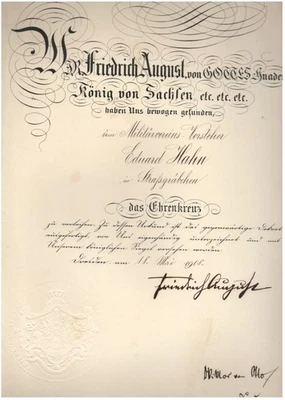 Wir Friedrich August, von GOTTES Gnaden
König von Sachsen, etc. etc. etc.
haben Uns bewogen gefunden,
dem Militärvereins-Vorsteher
Eduard Hahn
in Straßgräbchen
das Ehrenkreuz
zu verleihen. Zu dessen Urkund ist das gegenwärtige Dekret
ausgefertigt, von Uns eigenhändig unterzeichnet und mit
Unserem königlichen Siegel versehen worden.
Dresden, am 18. Mai
Friedrich August